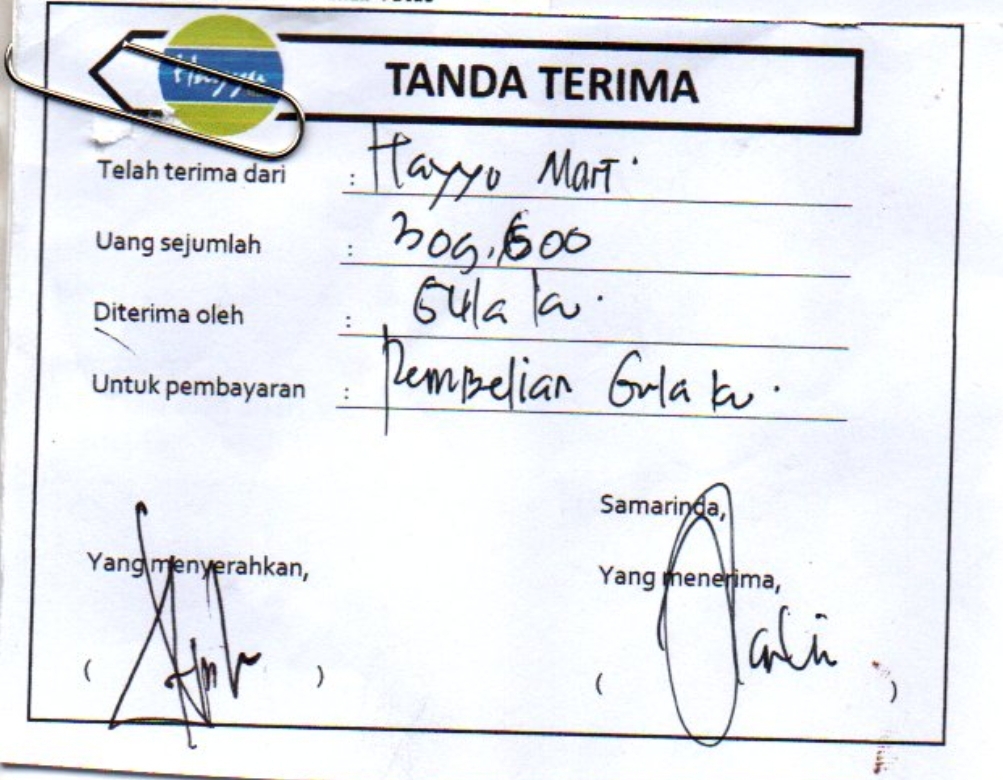 TANDA TERIMA
Telah terima dari : Hayyu Mart.
Uang sejumlah : 309.600
Diterima oleh : Gula ku.
Untuk pembayaran : Pembelian Gula ku.
Samarinda,
Yang menyerahkan, Yang menerima,
( ) ( )